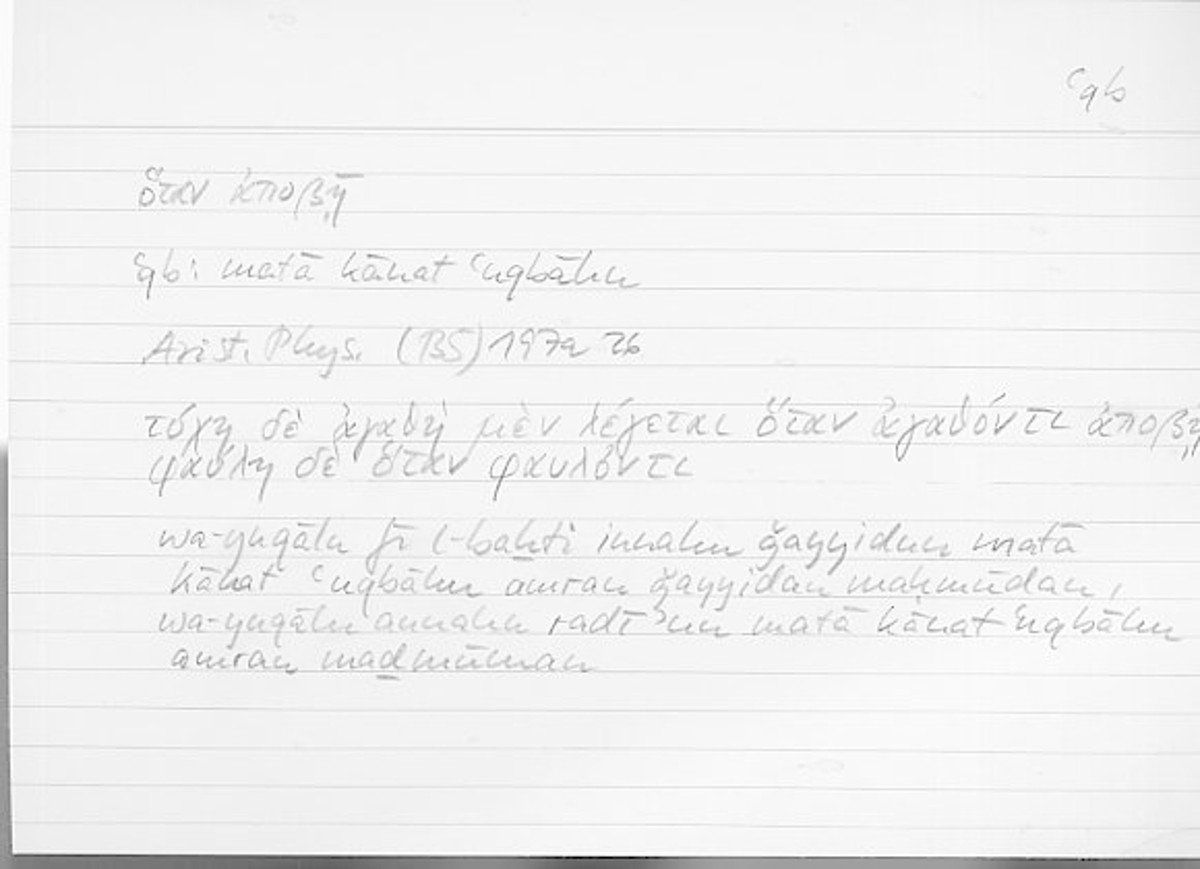 ʿqb
ὅταν ἀποβῇ
ʿqb: matā kānat ʿuqbāhu
Arist. Phys. (BS) 197a 26
τύχη δὲ ἀγαθὴ μὲν λέγεται ὅταν ἀγαθόν τι ἀποβῇ
φαύλη δὲ ὅταν φαυλόν τι
wa-yuqālu fī l-baḫti innahu ǧayyidun matā
kānat ʿuqbāhu amran ǧayyidan maḥmūdan,
wa-yuqālu annahu radīʾun matā kānat ʿuqbāhu
amran maḏmūman